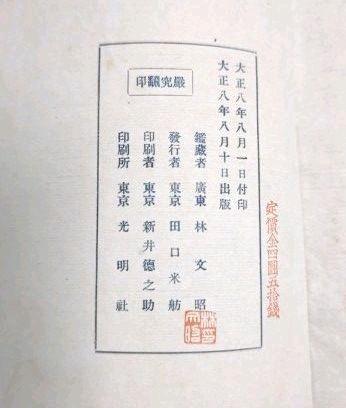 定價金四圓五拾錢
大正八年八月一日付印
大正八年八月十日出版
嚴究飜印
鑑藏者 廣東 林文昭
發行者 東京 田口米舫
印刷者 東京 新井德之助
印刷所 東京 光明社